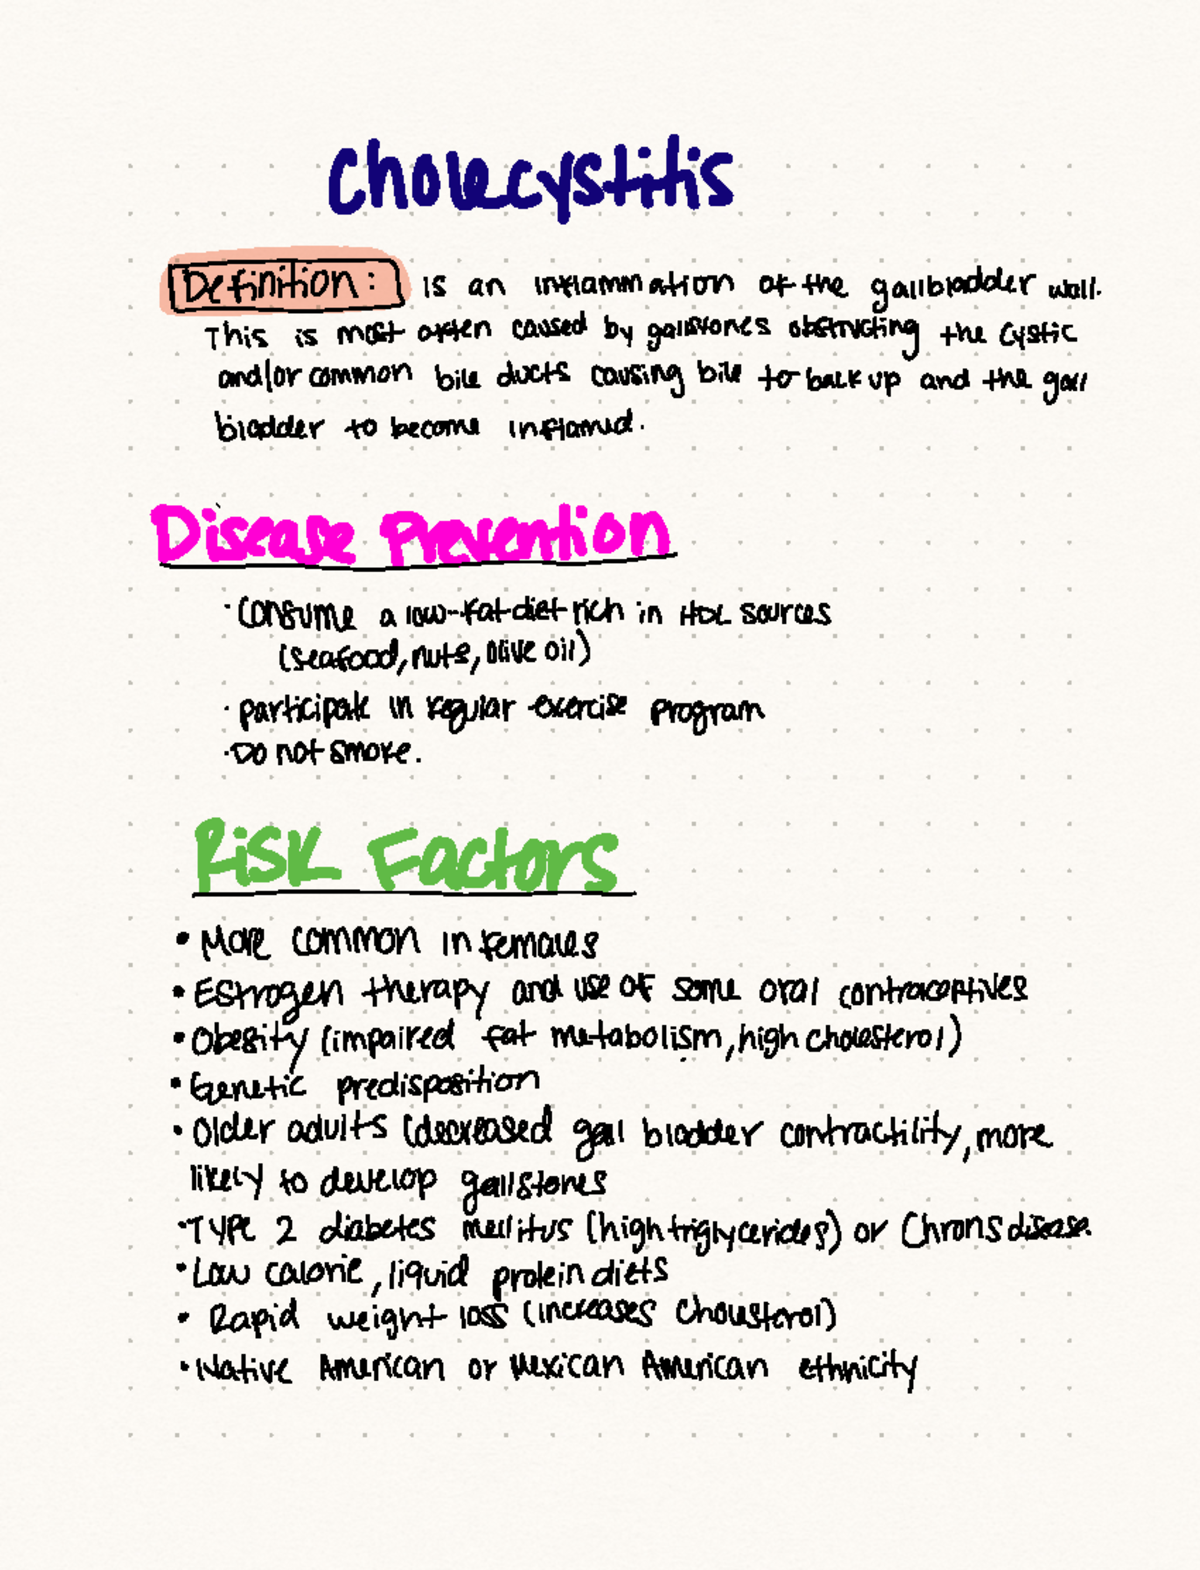 Cholecystitis
Definition: is an inflammation of the gallbladder wall.
This is most often caused by gallstones obstructing the cystic
and/or common bile ducts causing bile to back up and the gall
bladder to become inflamed.
Disease Prevention
· Consume a low-fat diet rich in HDL sources
(seafood, nuts, olive oil)
· participate in regular exercise program
· Do not smoke.
Risk Factors
• More common in females
• Estrogen therapy and use of some oral contraceptives
• Obesity (impaired fat metabolism, high cholesterol)
• Genetic predisposition
• Older adults (decreased gall bladder contractility, more
likely to develop gallstones
• Type 2 diabetes mellitus (high triglycerides) or Chrons disease.
• Low calorie, liquid protein diets
• Rapid weight loss (increases cholesterol)
• Native American or Mexican American ethnicity